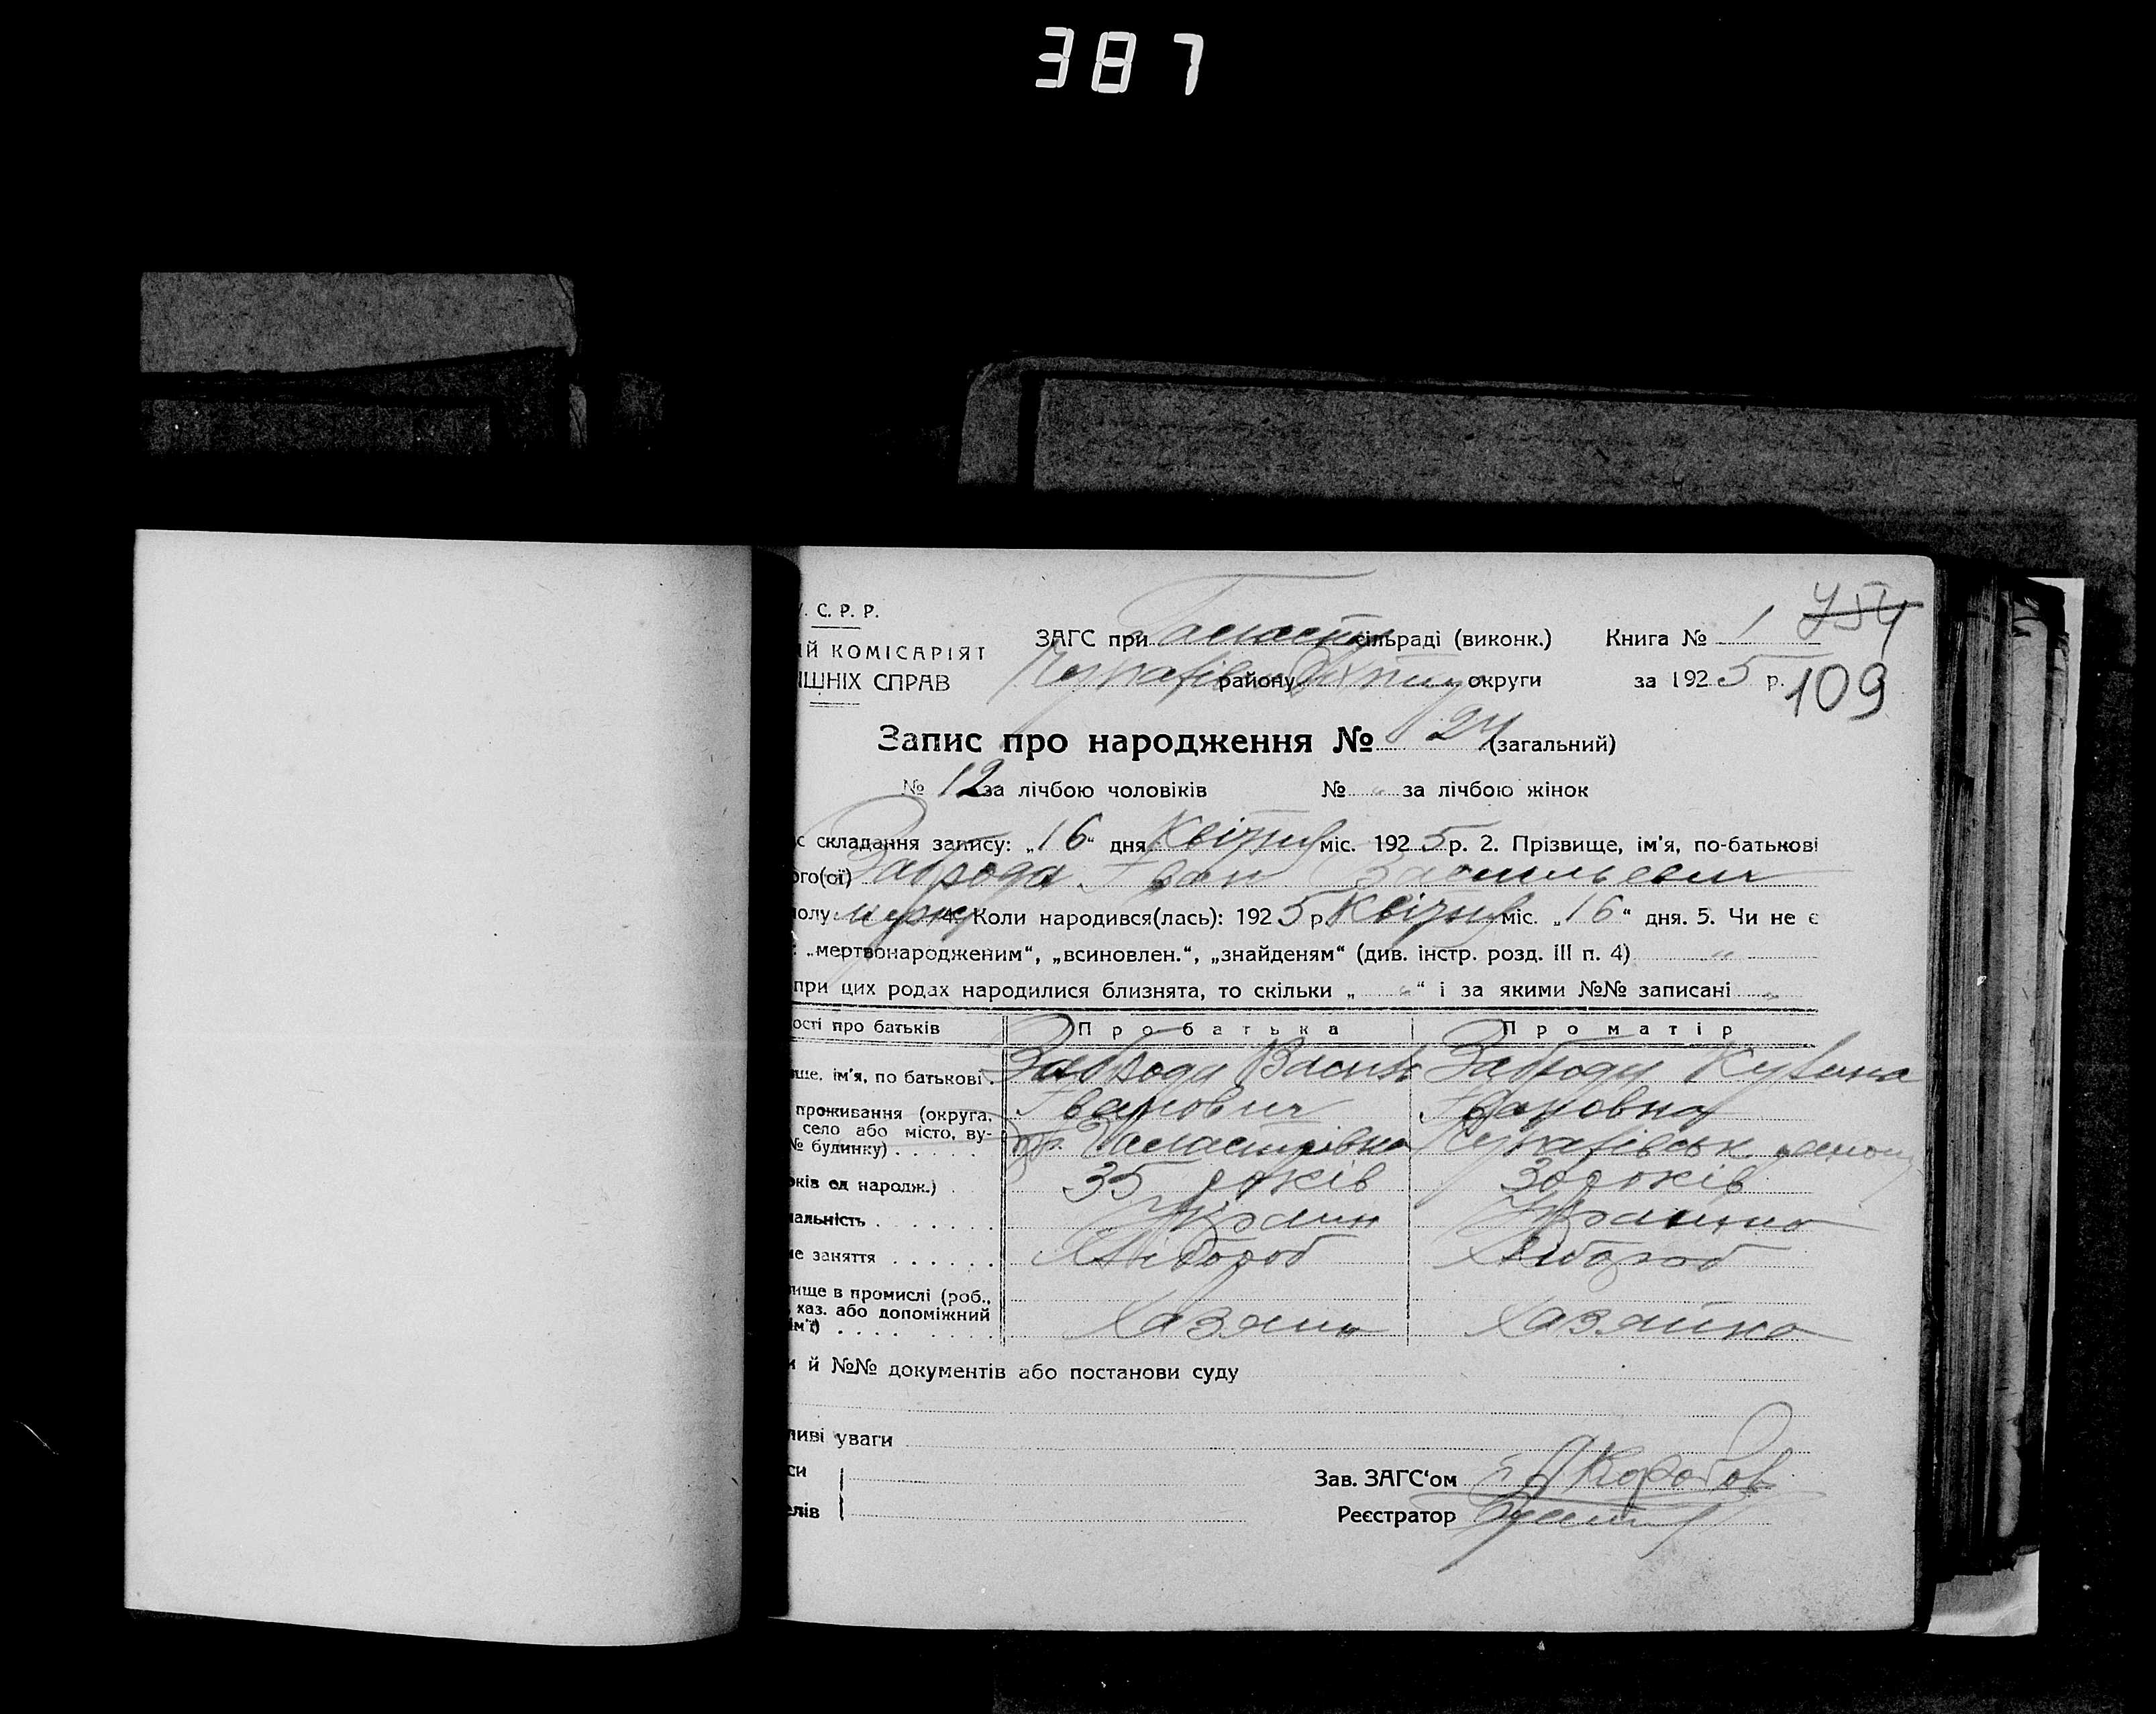 387
У. С. Р. Р.
ИЙ КОМІСАРІЯТ
ІШНІХ СПРАВ
ЗАГС при сільраді (виконк.) Книга № 1 754
району округи за 1925 р. 109
Запис про народження № 24 (загальний)
№ 12 за лічбою чоловіків № " за лічбою жінок
с складання запису: „16" дня Квітня міс. 1925 р. 2. Прізвище, ім'я, по-батькові
ого(ої) Заброда Іван Васильевич
полу 4. Коли народився(лась): 1925 р. Квітня міс. „16" дня. 5. Чи не є
: „мертвонародженим", „всиновлен.", „знайденям" (див. інстр. розд. III п. 4) "
при цих родах народилися близнята, то скільки „ " " і за якими №№ записані "
ості про батьків Про батька Про матір
ще, ім'я, по батькові Заброда Василь Заброда
Іванович Івановна
проживання (округа,
село або місто, ву-
№ будинку)
оків од народж.) 35 років 30 років
альність Украин Украинка
не заняття Хлібороб Хлібороб
ище в промислі (роб.,
каз. або допоміжний
ім'ї) Хазяин Хазяйка
и й №№ документів або постанови суду
ливі уваги
си
елів
Зав. ЗАГС'ом
Реєстратор